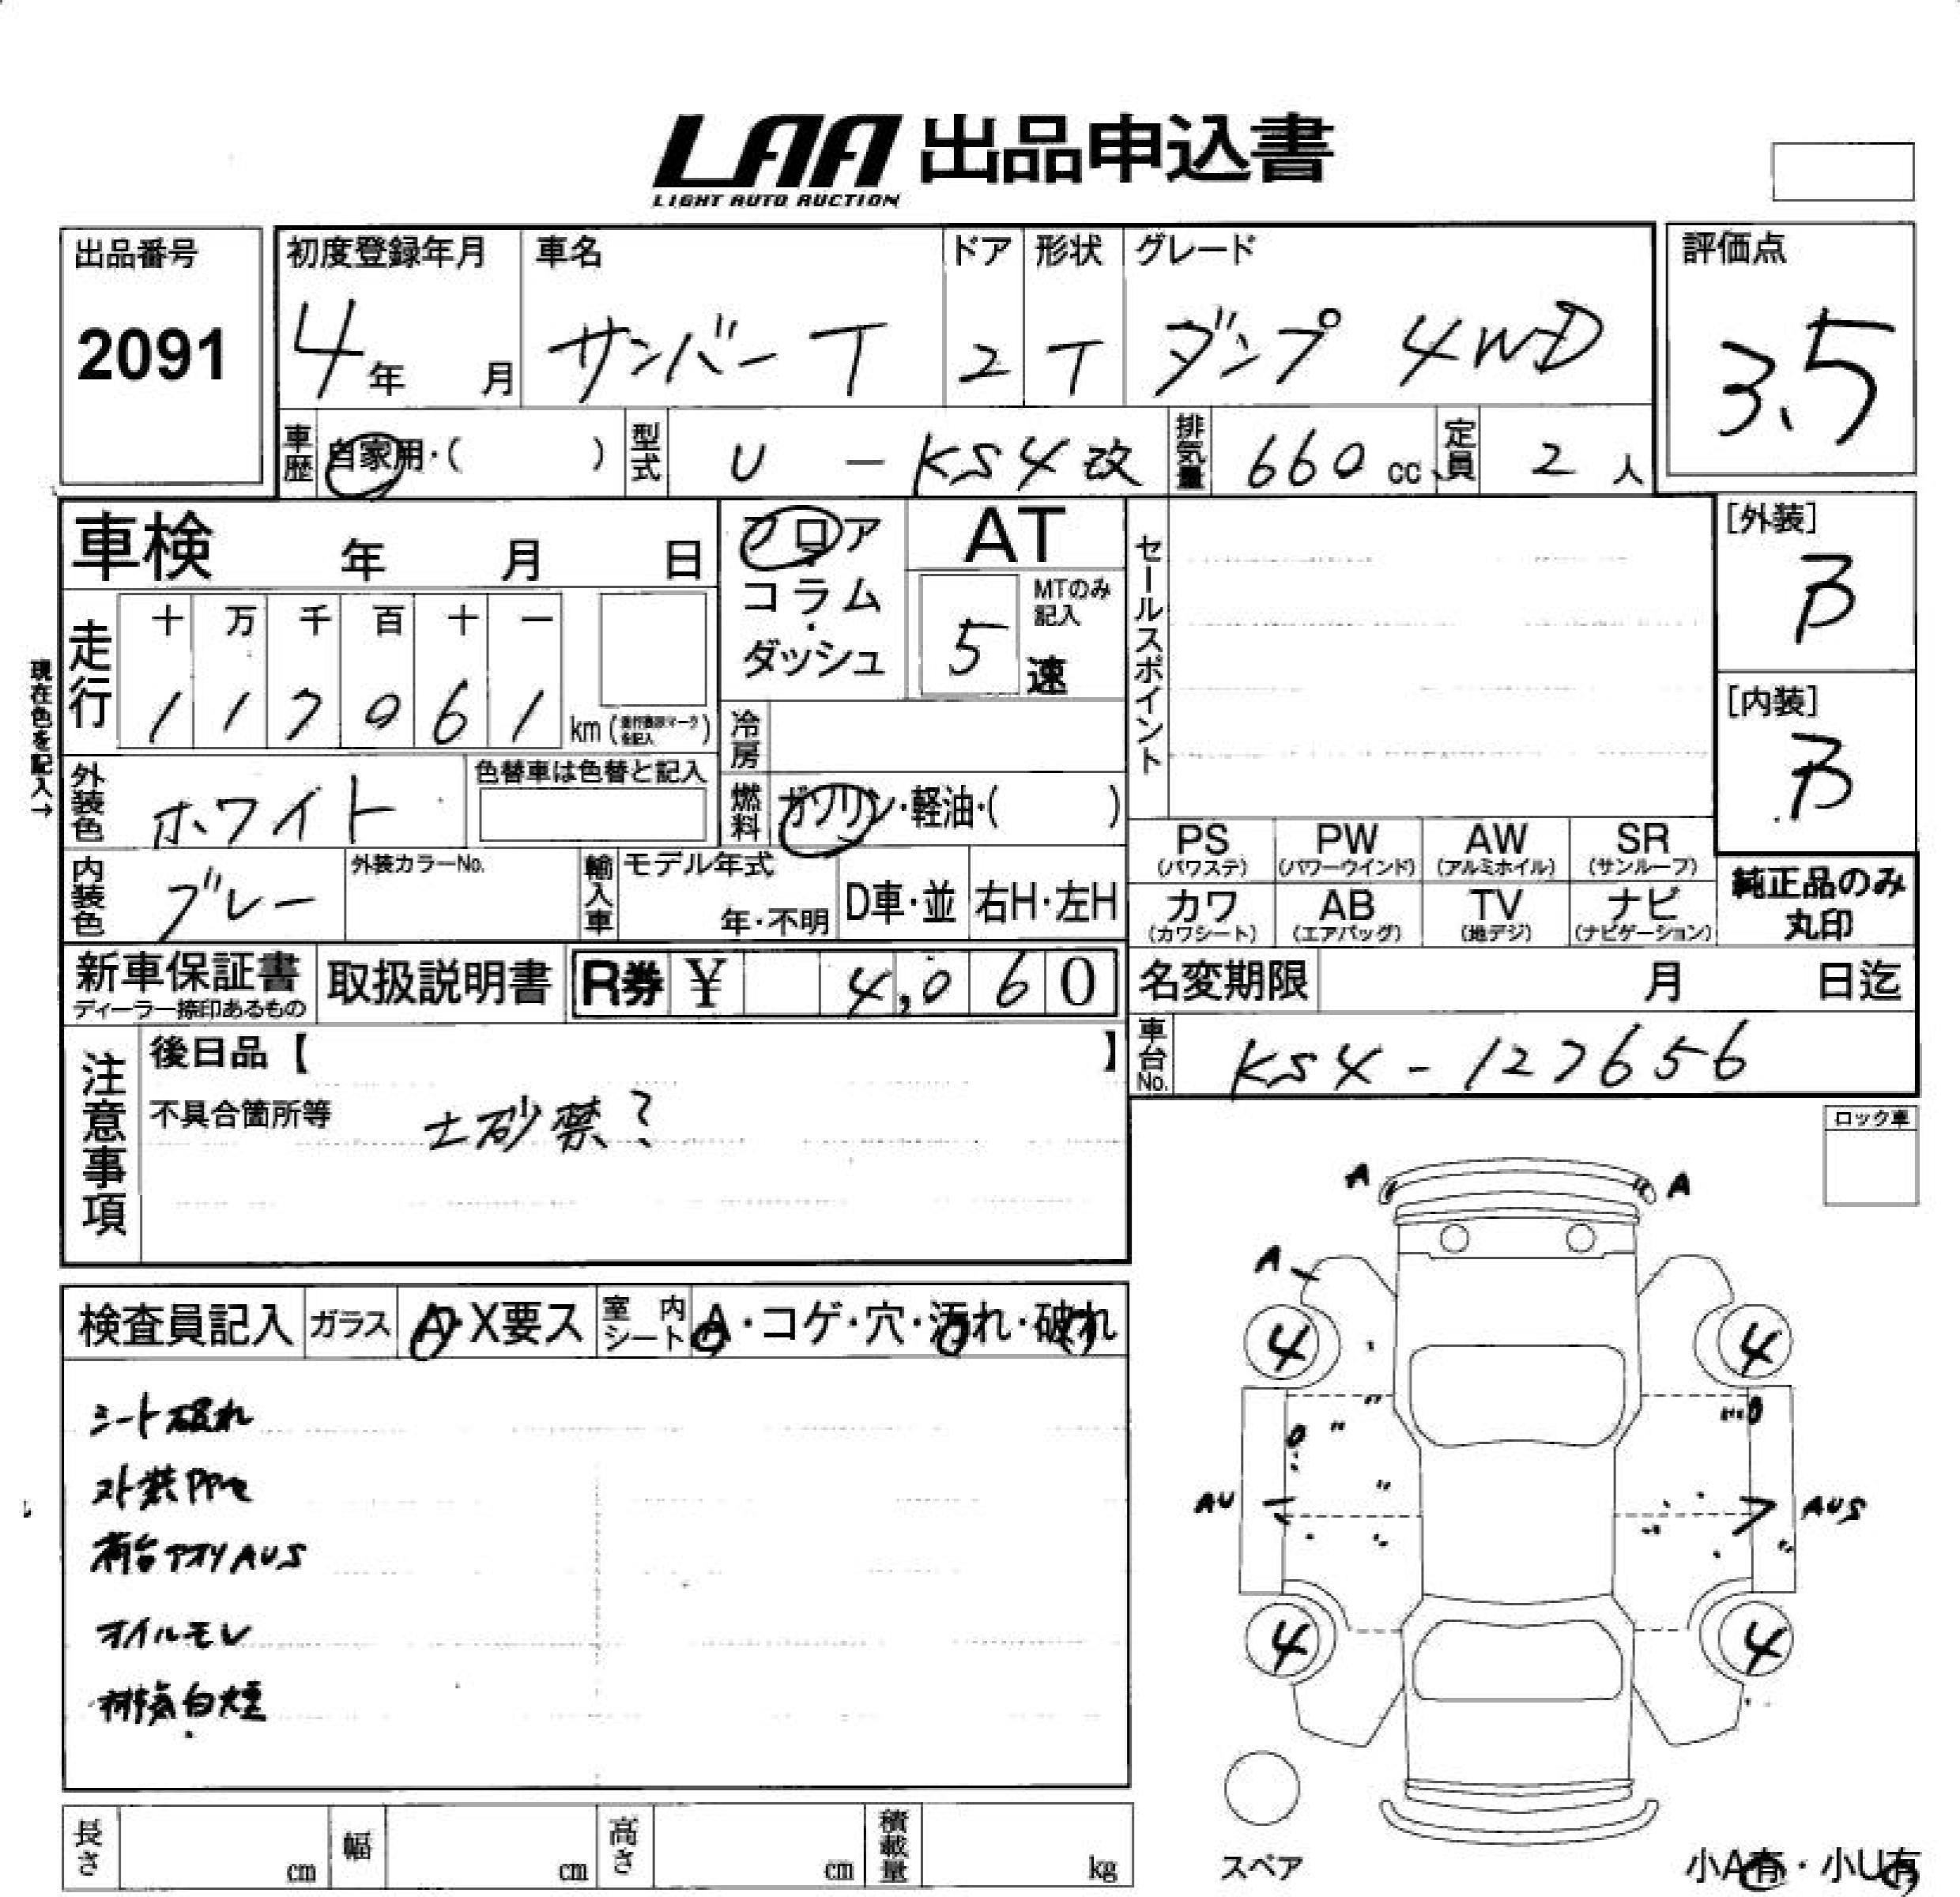 LAA 出品申込書
LIGHT AUTO AUCTION
出品番号 2091
初度登録年月 4年 月
車名 サンバーT
ドア 2
形状 T
グレード ダンプ 4WD
評価点 3.5
車歴 自家用・( )
型式 U - KS4改
排気量 660 cc
定員 2 人
車検 年 月 日
フロア・コラム・ダッシュ
AT
MTのみ記入 5 速
セールスポイント
[外装] B
[内装] B
現在色を記入→
走行 十 万 千 百 十 一
1 1 7 0 6 1 km
冷房
外装色 ホワイト
色替車は色替と記入
燃料 ガソリン・軽油・( )
内装色 グレー
外装カラーNo.
輸入車 モデル年式 年・不明
D車・並 右H・左H
PS (パワステ) PW (パワーウインド) AW (アルミホイル) SR (サンルーフ)
カワ (カワシート) AB (エアバッグ) TV (地デジ) ナビ (ナビゲーション)
純正品のみ丸印
新車保証書 ディーラー捺印あるもの
取扱説明書
R券 ¥ 4,060
名変期限 月 日迄
車台No. KS4-127656
注意事項
後日品【 】
不具合箇所等 土砂禁?
ロック車
検査員記入 ガラス A・X要ス
室内シート A・コゲ・穴・汚れ・破れ
シート破れ
外装PPセ
荷台アオリAUS
オイルモレ
排気白煙
A A
A
4 4
AU AUS
4 4
スペア
小A有・小U有
長さ cm 幅 cm 高さ cm 積載量 kg